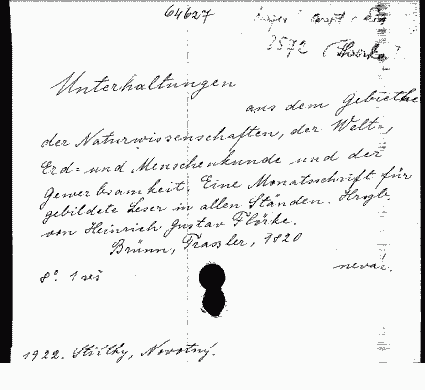 64627
3572
Unterhaltungen
aus dem Gebiethe
der Naturwissenschaften, der Welt-,
Erd- und Menschenkunde und der
Gewerbsamkeit. Eine Monatsschrift für
gebildete Leser in allen Ständen. Hrgb.
von Heinrich Gustav Flörke.
Brünn, Trassler, 1820
8° 1 seš. nevaz.
1922. Stížky, Novotný.